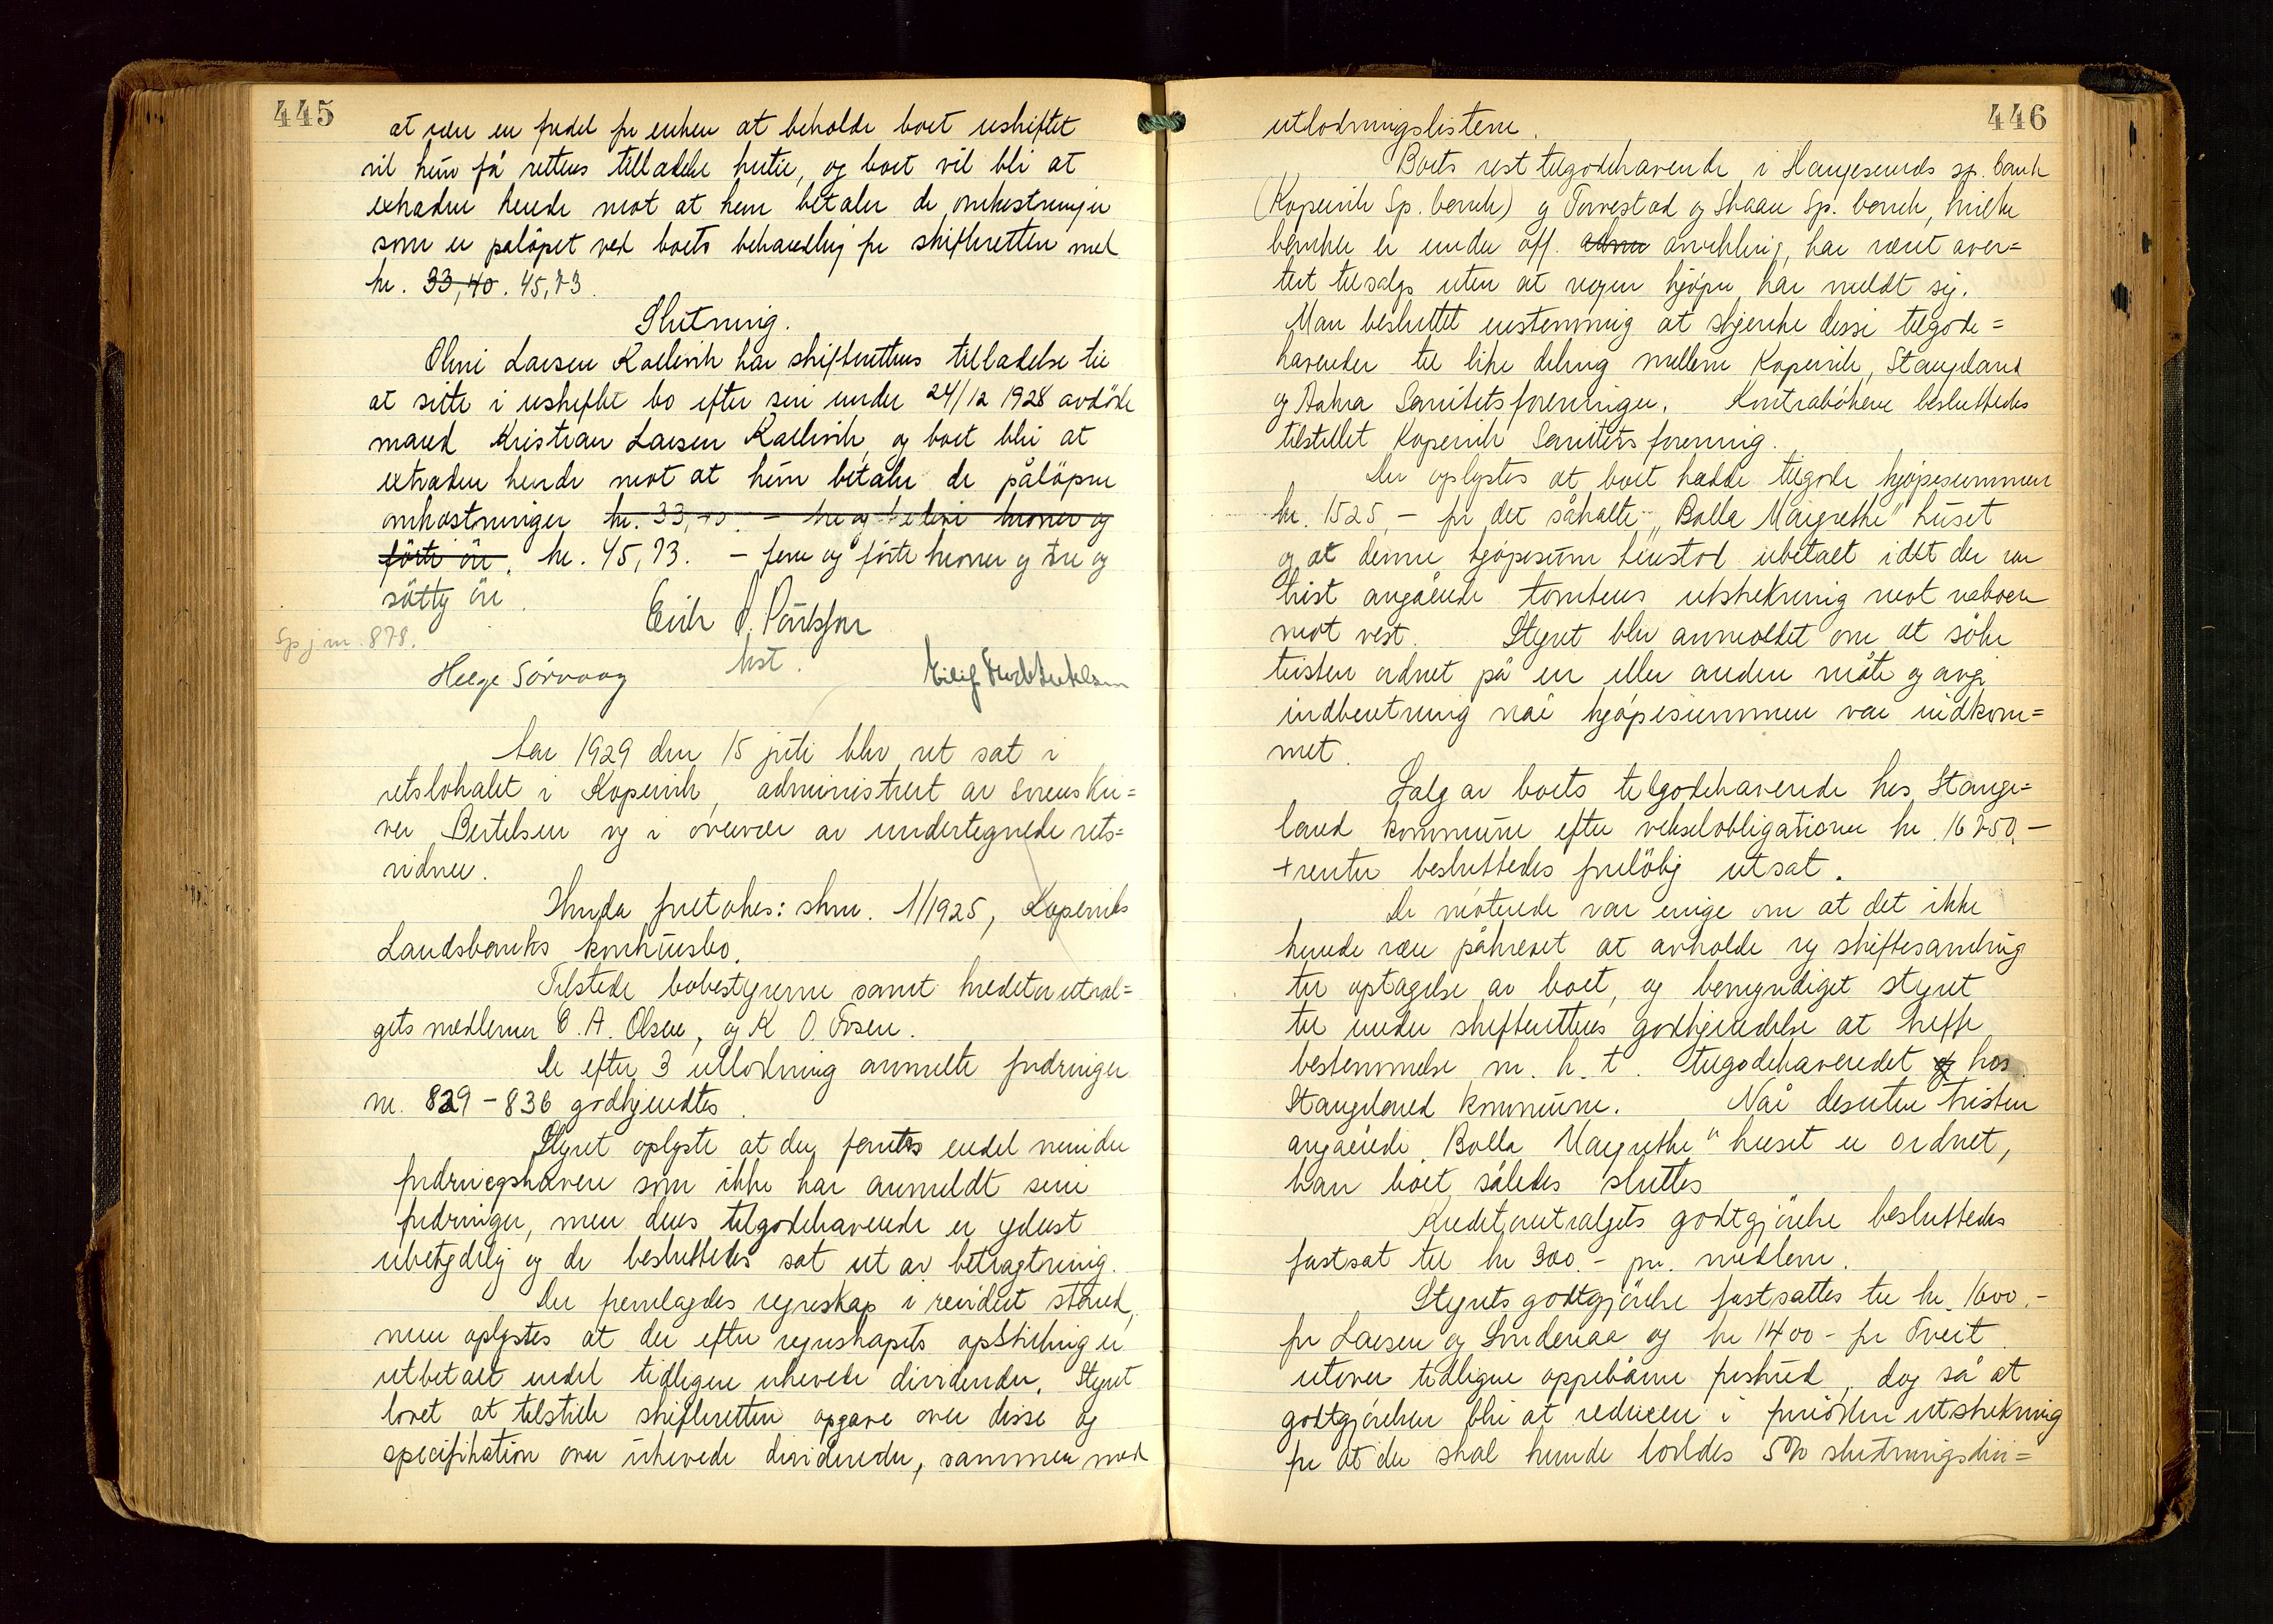 445
at være en fordel for enken at beholde boet uskiftet
vil hun få rettens tilladelse hertil, og boet vil bli at
extradere hende mot at hun betaler de omkostninger
som er påløpet ved boets behandling for skifteretten med
kr. 33,40. 45,73.
Slutning.
Oline Larsen Kallevik har skifterettens tilladelse til
at sitte i uskiftet bo efter sin under 24/12 1928 avdöde
mand Kristian Larsen Kallevik, og boet blir at
extradere hende mot at hun betaler de påløpne
omkostninger kr. 33,40. - tre og treti kroner og
förti öre. kr. 45,73. - fem og förti kroner og tre og
sötty öre.
Erik P. Paulsson
kst.
Sp j nr. 878.
Helge Sörvaag
Eilif
Aar 1929 den 15 juli blev ret sat i
retslokalet i Kopervik, administrert av sorenskri=
ver Bertelsen og i overvær av undertegnede rets=
vidner.
Hvorda foretokes: skm. 1/1925, Koperviks
Landsbanks konkursbo.
Tilstede bobestyrerne samt kreditorutval=
gets medlemmer E. A. Olsen, og K. O. Fosen.
De efter 3 utlodning anmeldte fordringer
nr. 829-836 godkjendtes.
Styret oplyste at der fantes endel mindre
fordringshavere som ikke har anmeldt sine
fordringer, men deres tilgodehavende er yderst
ubetydelig og de besluttedes sat ut av betragtning.
Der fremlagdes regnskap i revidert stand,
men oplystes at der efter regnskapets opstilling er
utbetalt endel tidligere uhevede dividender. Styret
lovet at tilstille skifteretten opgave over disse og
specifikation over uhevede dividender, sammen med
446
utlodningslistene.
Boets rest tilgodehavende i Haugesunds sp. bank
(Kopervik Sp. bank) og Torvestad og Skaare Sp. bank, hvilke
banker er under off. adm avvikling, har været aver=
tert tilsalgs uten at nogen kjöper har meldt sig.
Man besluttet enstemmig at skjenke disse tilgode=
havender til like deling mellem Kopervik, Stangeland
og Aakra Sanitetsforeninger. Kontrabökene besluttedes
tilstillet Kopervik Sanitetsforening.
Der oplystes at boet hadde tilgode kjöpesummen
kr. 1525,- for det såkalte "Bolla Margrethe" huset
og at denne kjöpesum henstod ubetalt idet der var
tvist angående tomtens utstrekning mot naboen
mot vest. Styret blev anmodet om at söke
tvisten ordnet på en eller anden måte og avgi
indberetning når kjöpesummen var indkom=
met.
Salg av boets tilgodehavende hos Stange=
land kommune efter vekselobligationer kr. 16250.-
+ renter besluttedes forelöbig utsat.
De mötende var enige om at det ikke
kunde være påkrevet at avholde ny skiftesamling
til optagelse av boet, og bemyndiget styret
til under skifterettens godkjendelse at treffe
bestemmelse m. h. t. tilgodehavendet hos
Stangeland kommune. Når desuten tvisten
angående "Bolla Margrethe" huset er ordnet,
kan boet således sluttes
Kreditorutvalgets godtgjörelse besluttedes
fastsat til kr 300.- pr. medlem.
Styrets godtgjörelse fastsattes til kr. 1600.-
for Larsen og Sundenaa og kr 1400- for Tveit
utover tidligere oppebårne forskud, dog så at
godtgjörelsen blir at reducere i fornöden utstrekning
for at der skal kunde lovldes 5% slutningsdivi=